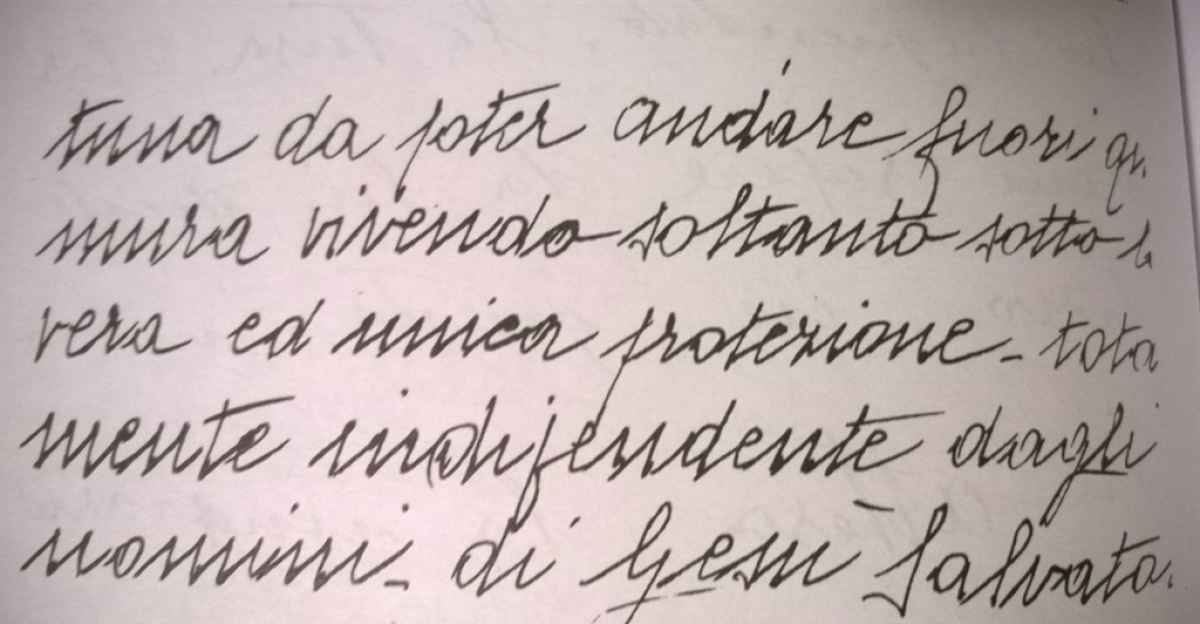 tuna da poter andare fuori
mura vivendo soltanto sotto
vera ed unica protezione - tota
mente indipendente dagli
uomini - di Gesù Salvato